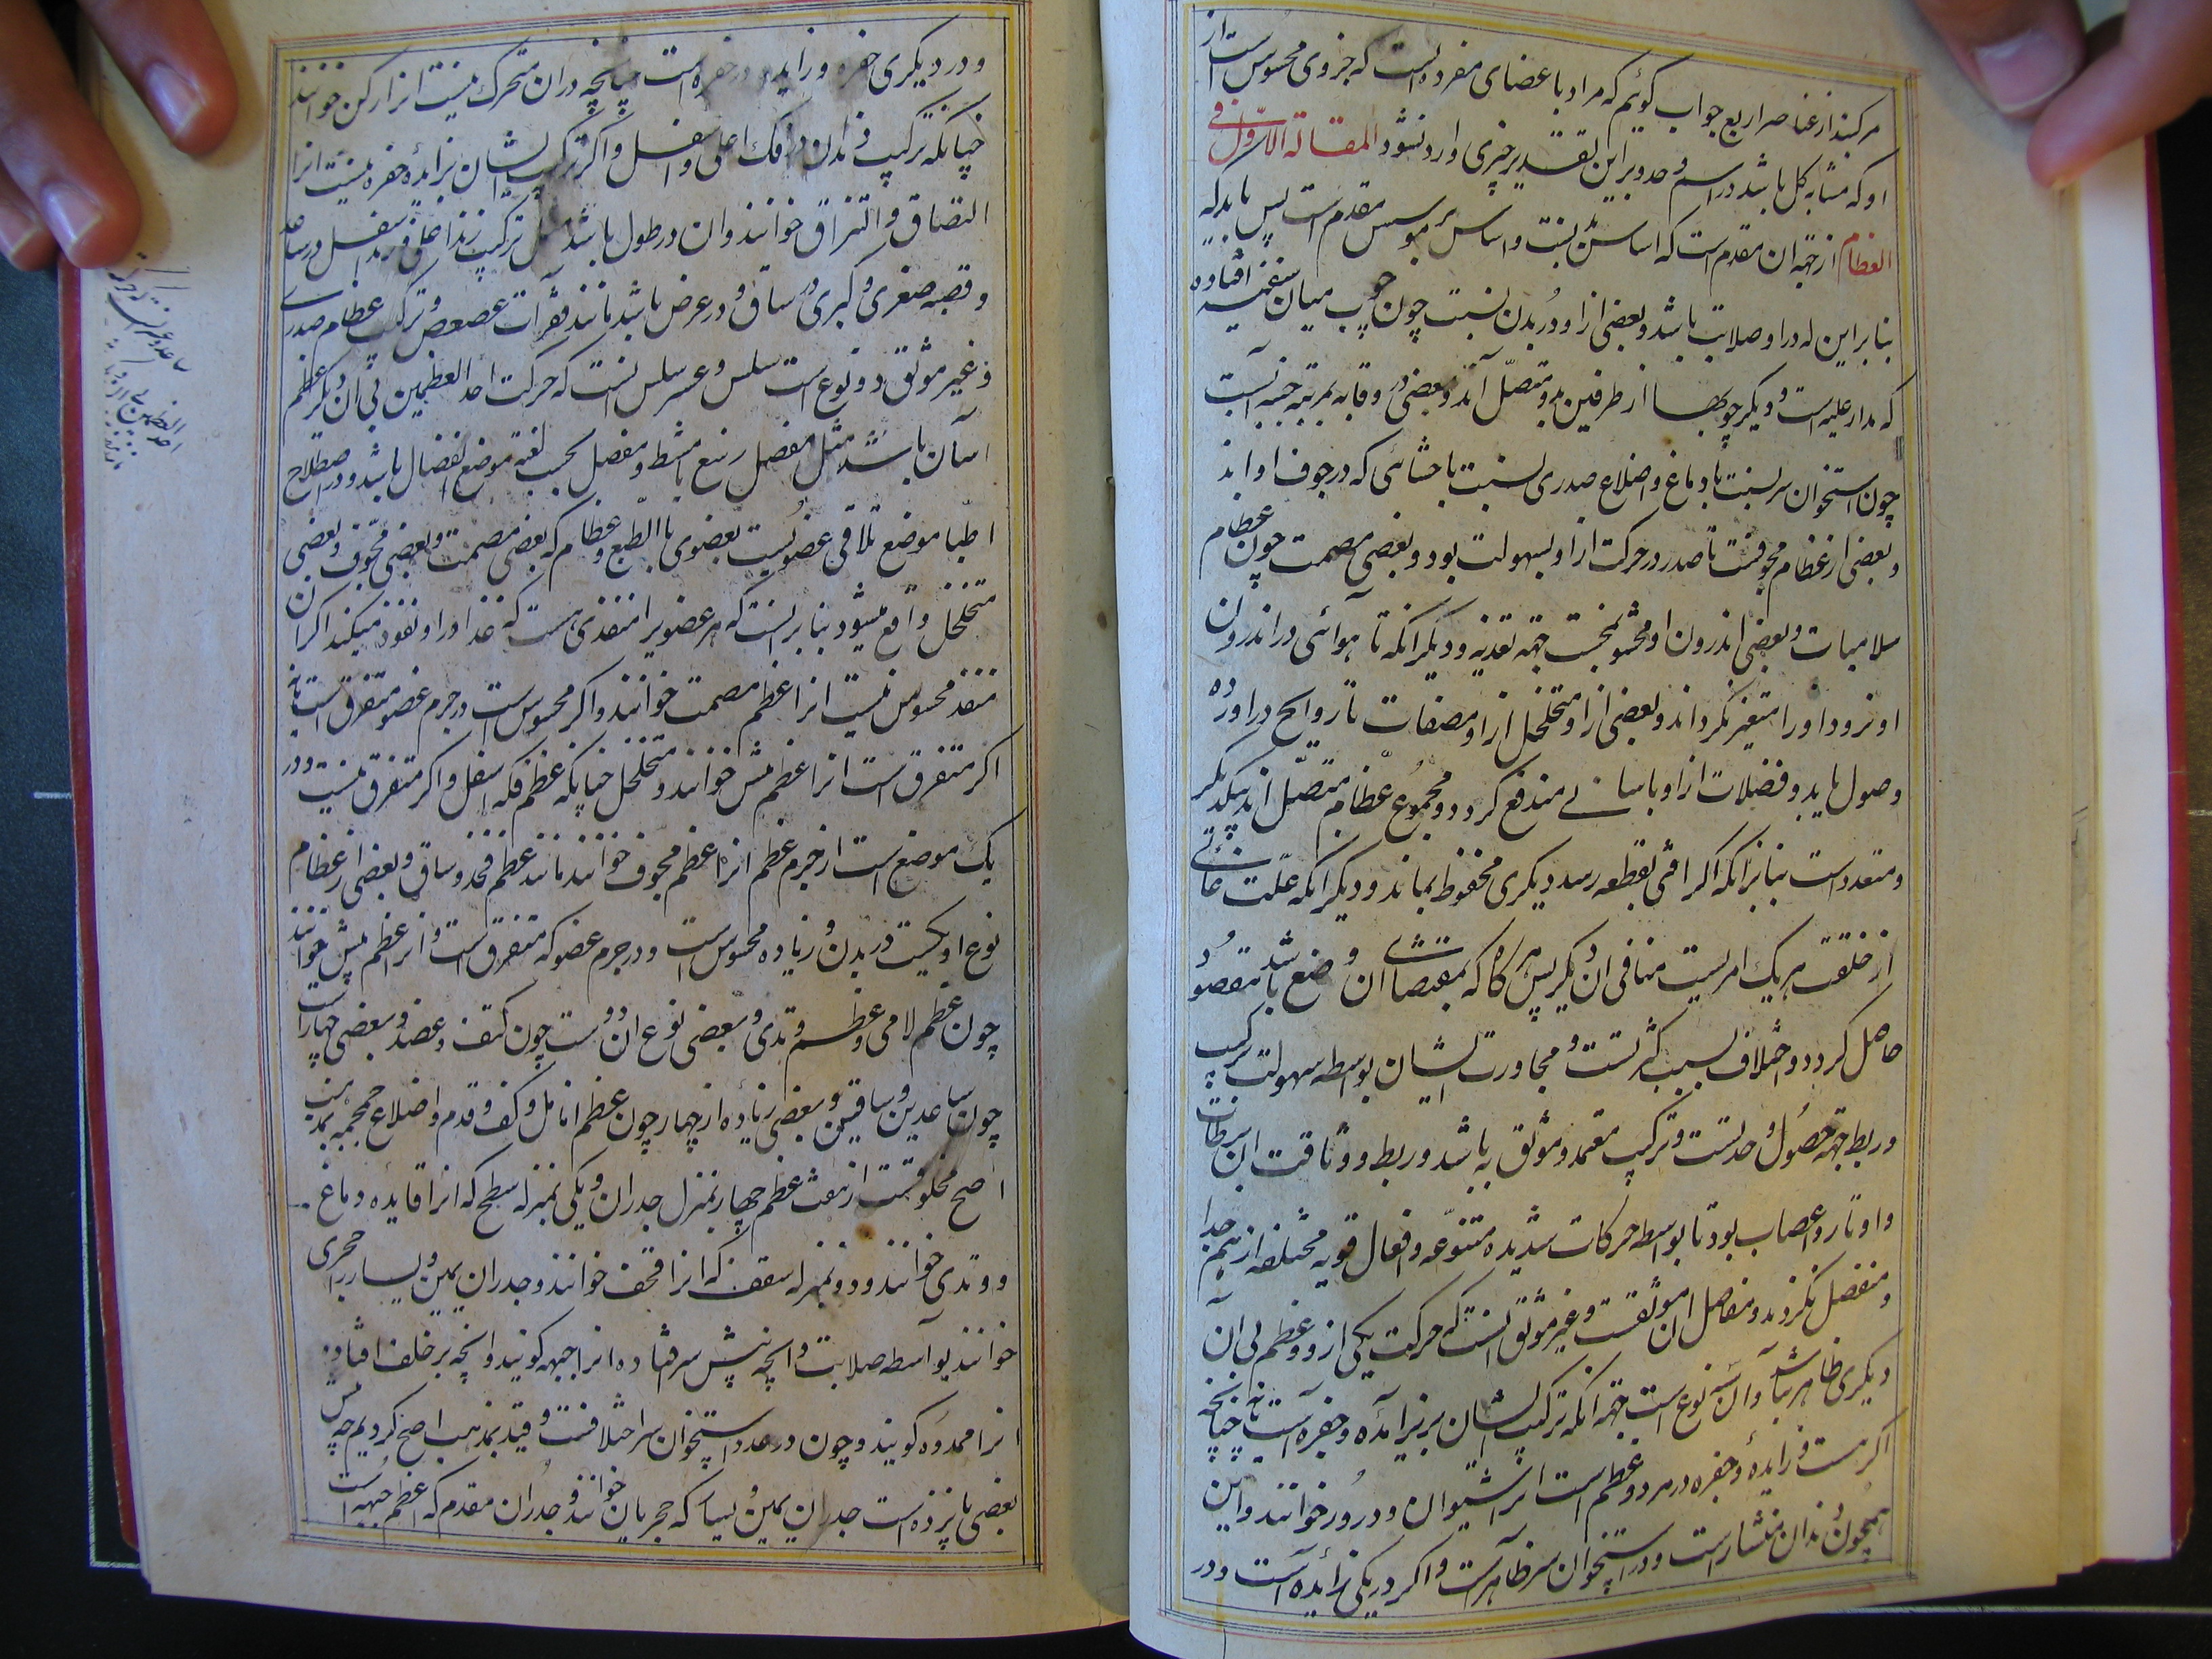 مرکبند از عناصر اربع جواب کوئیم که مراد باعضای مفرده انست که جزوی محسوس است از
او که مشابه کل باشد در اسم و حد و برین تقدیر چیزی وارد نشود المقالة الاول فی
العظام از جهة ان مقدم است که اساس بدنست و اساس بر موسس مقدم است پس باید که
بنابراین که در او صلابت باشد و بعضی از او در بدن نسبت چون چوب میان سفینه افتاده
که مدار علیه است و دیکر چوبها از طرفین بدو متصل آید و بعضی در وقایه بمرتبه جنبه است
چون استخوان سر نسبت با دماغ و اضلاع صدری نسبت با حشائی که در جوف او اند
و بعضی از عظام مجوفست تا صدر در حرکت از او بسهولت بود و بعضی مصمت چون عظام
سلامیات و بعضی اندرون او محشو بمخست جهة تغذیه و دیکر انکه تا هوائی در اندرون
او نرود او را متغیر نکرداند و بعضی از او متخلخل از او مصفات تا روایح در او زود
وصول یابد و فضلات از او باسانی مندفع کردد و مجموع عظام متصل اند بیکدیکر
و متعدد است بنابرانکه اکر افتی بقطعه رسد دیکری محفوظ بماند و دیکر انکه علت غائی
از خلقت هر یک امریست منافی ان دیکر پس هر کاه که بمقتضای ان وضع باشد مقصود
حاصل کردد و اختلاف بسبب کثرتست و مجاورت ایشان بواسطه سهولت ترکیب
و ربط جهة حصول وحدتست و ترکیب معتمد و موثق به باشد و ربط و وثاقت ان برباطات
و اوتار و اعصاب بود تا بواسطه حرکات شدیده متنوعه و افعال قویه مختلفه از هم جدا
و منفصل نکردد و مفاصل ان موثقست و غیر موثق انست که حرکت یکی از دو عظم بی ان
دیکری ظاهر نباشد و آن سه نوع است جهة انکه ترکیب ایشان بر زایده و حفره است یا نه چنانچه
اکر هست و زایده و حفره در هر دو عظم است انرا شیوان و دروز خوانند و این
همچون دندان منشار است و در استخوان سر ظاهر است و اکر در یکی زایده است و در
و در دیکری حفره و زایده در حفره است چنانچه در ان متحرک نیست انرا رکز خوانند
چنانکه ترکیب دندان در فک اعلی و اسفل و اکر ترکیب ایشان بزایده و حفره نیست انرا
التصاق و التزاق خوانند و ان در طول باشد مثل ترکیب زند اعلی و زند اسفل در ساعد
و قصبه صغری و کبری در ساق و در عرض باشد مانند فقرات عصعص و ترکیب عظام صدر
و غیر موثق دو نوع است سلس و عسر سلس انست که حرکت احد العظمین بی ان دیکر عظم
اسان باشد مثل مفصل رسغ با مشط و مفصل بحسب لغة موضع انفصال باشد و در اصطلاح
اطبا موضع تلاقی عضویست بعضوی باالطبع و عظام که بعضی مصمت و بعضی مجوف و بعضی
متخلخل واقع میشود بنابر انست که هر عضویرا منفذی هست که غذا در او نفوذ میکند اکر ان
منفذ محسوس نیست انرا عظم مصمت خوانند و اکر محسوس است در جرم عضو متفرق است یا نه
اکر متفرق است انرا عظم مش خوانند و متخلخل چنانکه عظم فکه اسفل و اکر متفرق نیست و در
یک موضع است از جرم عظم انرا عظم مجوف خوانند مانند عظم فخذ و ساق و بعضی از عظام
نوع او یکیست در بدن و زیاده محسوس است و در جرم عضو که متفرق است و انرا عظم مش خوانند
چون عظم لامی و عظم وتدی و بعضی نوع ان دو است چون کتف و عضد و بعضی چهار است
چون ساعدین و ساقین و بعضی زیاده از چهار چون عظم انامل و کف و قدم و اضلاع جمجمه بمذهب
اصح مخلوقست از هفت عظم چهار بمنزل جدران و یکی بمنزله سطح که انرا قایده دماغ
و وتدی خوانند و دو بمنزله سقف که انرا قحف خوانند و جدران یمین و یسار را حجری
خوانند بواسطه صلابت و انچه پیش سر افتاده انرا جبهه کویند و انچه بر خلف افتاده
انرا قمحدوه کویند و چون در عدد استخوان سر اختلافست و قید بمذهب اصح کردیم چه پیش
بعضی پانزده است جدران یمین و یسار که حجریان خوانند و جدران مقدم که عظم جبهه است
احد العظمین بی